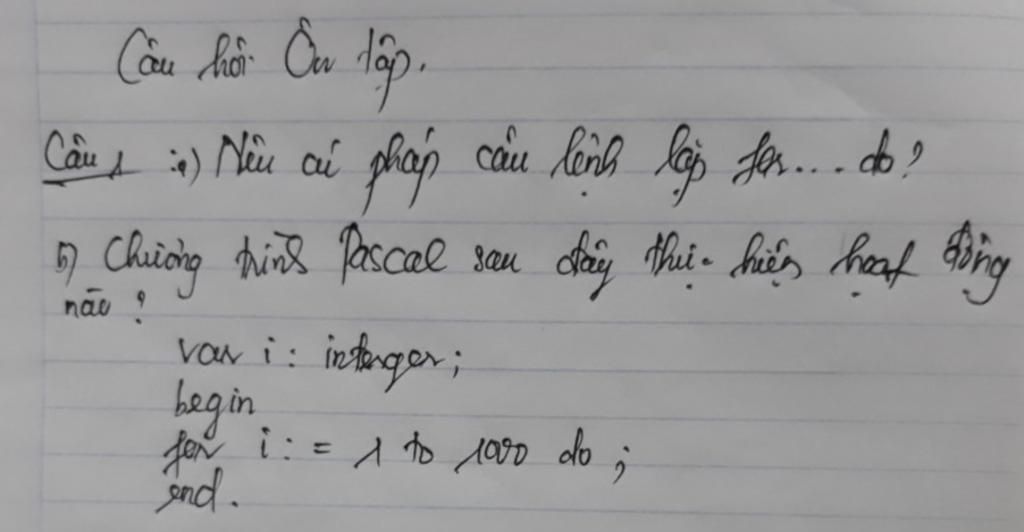 Câu hỏi Ôn tập.
Câu 1 : a) Nêu cú pháp câu lệnh lặp for... do?
b) Chương trình Pascal sau đây thực hiện hoạt động
nào?
var i : interger;
begin
for i : = 1 to 1000 do ;
end.